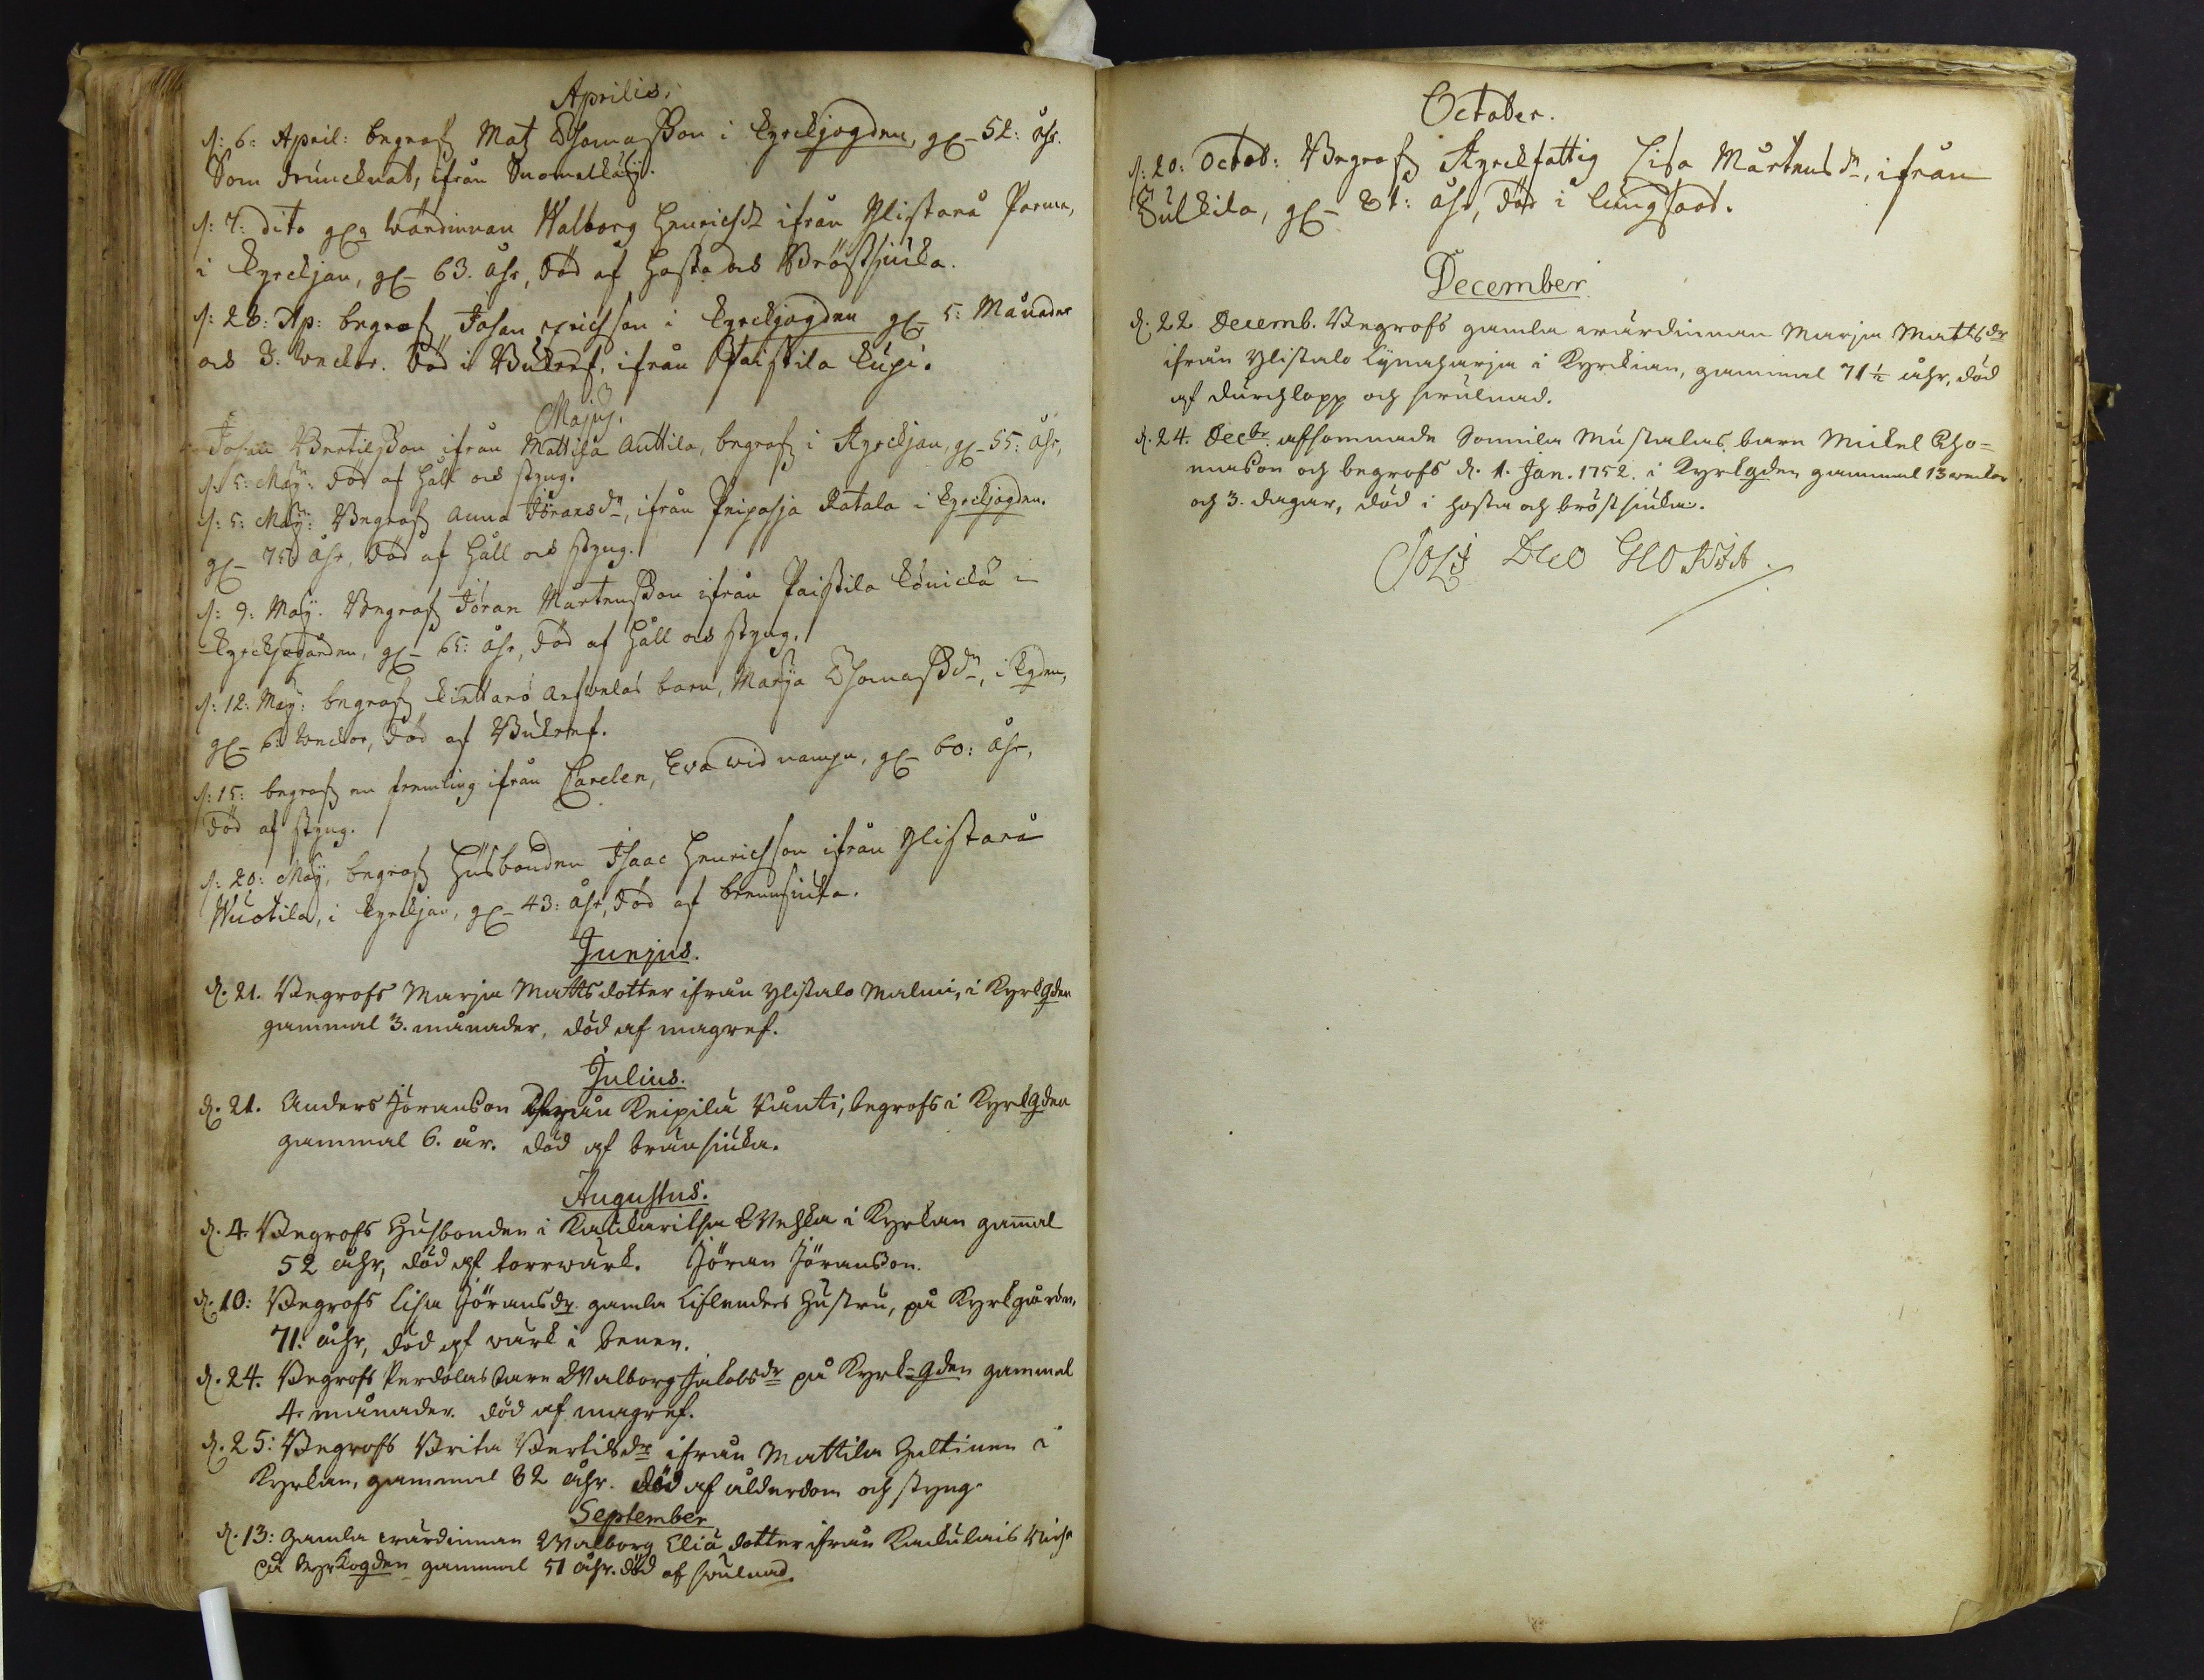 Aprilis.
d: 6: April: begrafz Matz Thomasßon i kyrckjogden, gl- 52: åhr.
Som druncknat, ifrån Suomalkåsi.
d: 7: dito wärdinnan Walborg Henrichsdr ifrån Ylistarå Parma,
i kyrckjan, gl- 63. åhr, död af hosta och Bröstsiuka.
d: 28: Ap: begrafz Johan Erichsson i kyrckjogden gl- 5: Månader
och 3. weckor. Död i Bukref, ifrån Paistila kupi.
Majus.
Johan Bertilsßon ifrån Mattila Anttila, begrafz i Kyrckjan, gl- 55: åhr,
d: 5: Maÿ: död af håll och styng.
d: 5: Maÿ: Begrafz Anna Jöransdr, ifrån Peipohja Ratala i kyrckjogden.
gl- 75: åhr, död af håll och styng.
d: 9: Maÿ. Begrafz Jöran Mårtensßon ifrån Paistila Könickä i
kyrckjogården, gl- 65: åhr, död af håll och styng.
d: 12: Maÿ: begrafz barn, Marja Thomasßdr, i kgden,
gl- 6: weckor, död af Bukref.
d: 15: begrafz en fremling ifrån Carelen, Eva wid nampn, gl- 60: åhr,
död af styng.
d: 20: Maÿ, begrafz Husbonden Isaac Henrichsson ifrån Ylistarå
Wuotila, i kyrckjan, gl- 43: åhr, död af brennsiuka.
Junjus.
d. 21. Begrofs Marja Mattsdotter ifrån Ylistalo Malmi, i Kyrkgden
gammal 3. månader, död af magref.
Julius.
d. 21. Anders Jöranson ifrån Keipilä Vänti, begrofs i Kyrkgden
gammal 6. år. död af brännsiuka.
Augustus.
d. 4. Begrofs Husbonden i Kaukaritsa Weska i Kyrkan gam̄al
52 åhr, död af torrwärk. Jöran Jöranson.
d. 10: Begrofs Lisa Jöransdr. gamla Liflenders Hustru, på Kyrkgården,
71. åhr, död af wärk i benen.
d. 24. Begrofs Perdolas barn Walborg Jakobsdr på Kyrk=gden gammal
4. månader. död af magref.
d. 25: Begrofs Brita Bertilsdr ifrån Mattila Hultinen i
Kyrkan, gammal 82 åhr. död af ålderdom och styng.
September
d. 13: gamla wärdinnan Walborg Eliä dotter ifrån Kaukulais
på kyrkogden gammal 51 åhr. död af swulnad.
October.
d: 20: Octob: Begrafz Kyrckfattig Lisa Mårtensdr, ifrån
Sulkila, gl- 81: åhr, död i lungsoot.
December
d. 22 Decemb. Begrofs gamla wärdinnan Marja Mattsdr
ifrån Ylistalo Kynäharja i Kyrckian, gammal 71 1/2 åhr, död
af durchlopp och swulnad.
d. 24. Decbr afsomnade Sonnila Mustalas barn Mickel Tho=
mason och begrofs d. 1. Jan. 1752. i Kyrkgden gammal 13 weckor
och 3. dagar, död i hosta och bröstsiuka.
Soli Deo Gloria.